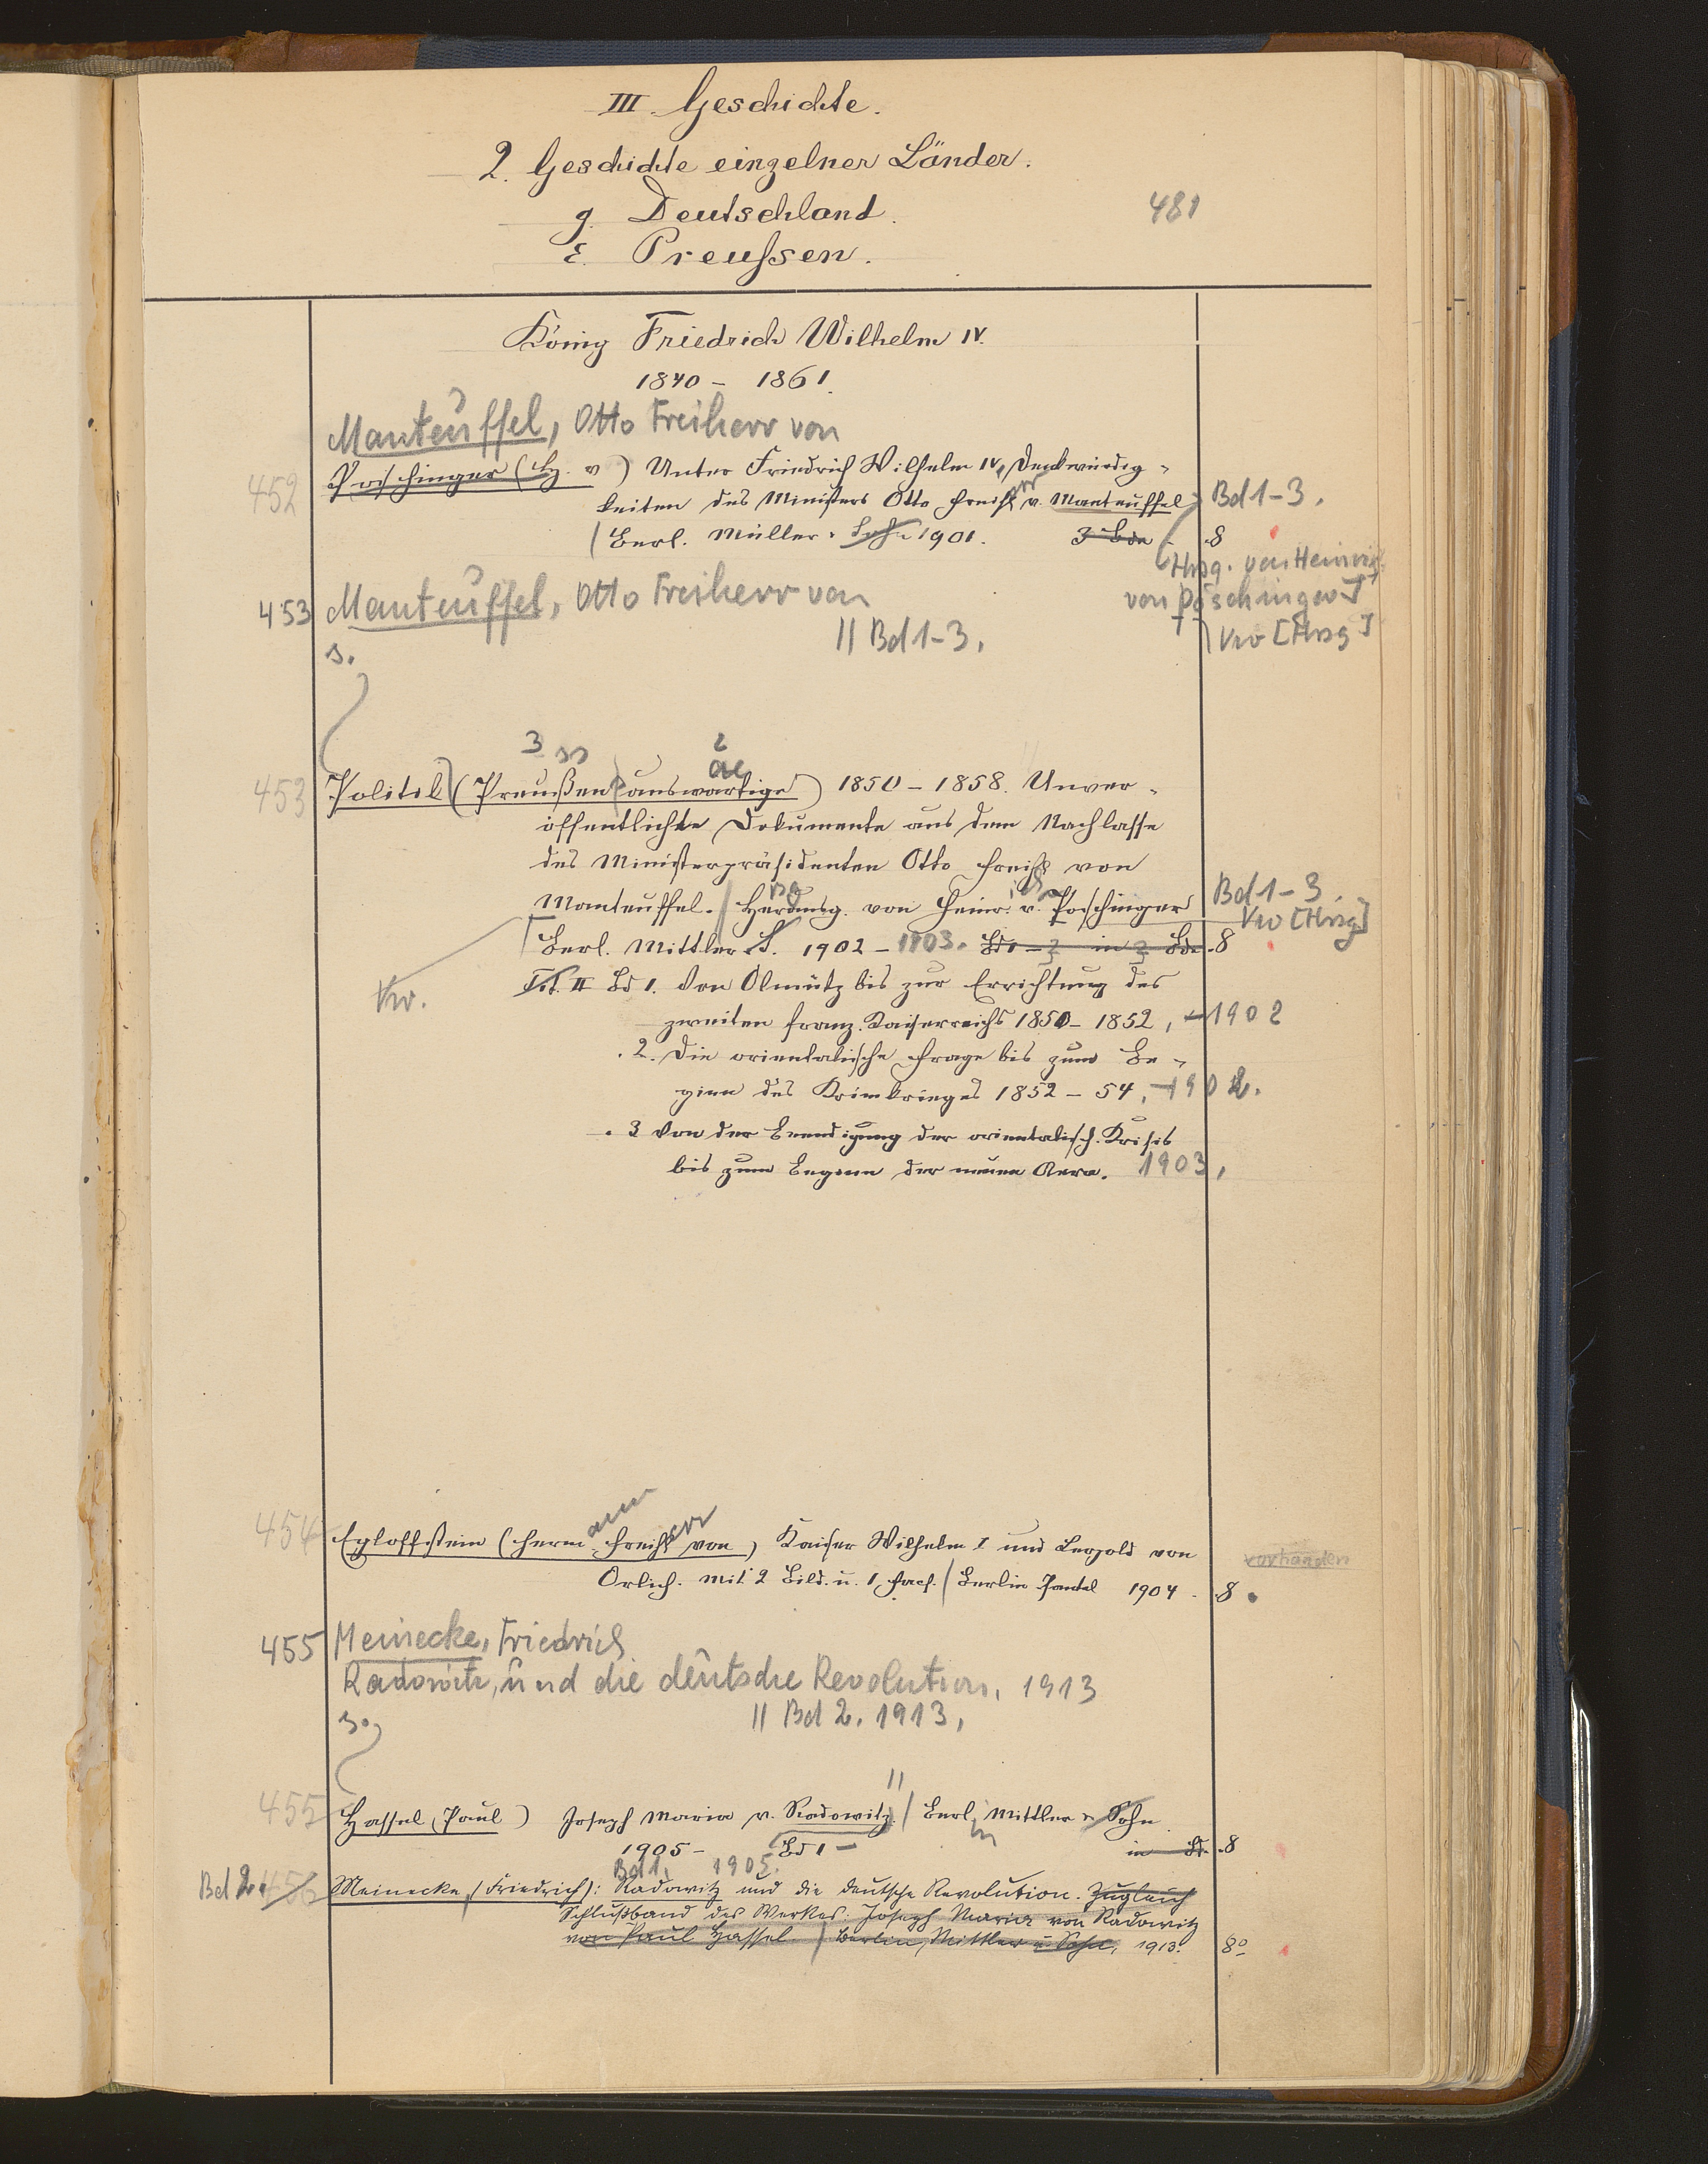 III. Geschichte.
2. Geschichte einzelner Länder.
g. Deutschland.
481
ε. Preussen.
König Friedrich Wilhelm IV.
1840 - 1861.
Manteuffel, Otto Freiherr von
452 Poschinger (H. v) Unter Friedrich Wilhelm IV, Denkwürdig-
keiten des Ministers Otto Freihrr v. Manteuffel Bd 1-3.
Berl. Müller. Sohn 1901. 3 Bde. 8
Hrsg. von Heinrich
von Poschinger]
453 Manteuffel, Otto Freiherr von
Vw [Hrsg]
s. || Bd 1-3.
3 ss 2 ae
453 Politik (Preußen auswärtige) 1850 - 1858. Unver-
öffentlichte Dokumente aus dem Nachlasse
des Ministerpräsidenten Otto Freih von
Manteuffel. Herausg. von Heinr. v. Poschinger Bd 1-3.
Vw [Hrsg]
Berl. Mittler S. 1902 - 1903. Bd 1 - 3 in 3 Bde. 8
Vw.
Tit. II Bd 1. Von Olmütz bis zur Errichtung des
zweiten franz. Kaiserreichs 1850 - 1852, 1902
. 2. Die orientalische Frage bis zum Be-
ginn des Krimkrieges 1852 - 54, 1902.
. 3 Von der Beendigung der orientalisch. Krisis
bis zum Beginn der neuen Aera. 1903,
454 Egloffstein (Hermann Freiherr von) Kaiser Wilhelm I und Leopold von vorhanden
Orlich. Mit 2 Bild. u. 1 Facs. Berlin Paetel 1904. 8
455 Meinecke, Friedrich
Radowitz, und die deutsche Revolution. 1913
s. || Bd 2. 1913,
455 Hassel (Paul) Joseph Maria v. Radowitz || Berlin Mittler & Sohn
1905 - Bd 1 - in Bd. 8
Bd 1. 1905.
Bd 2. 456 Meinecke, (Friedrich): Radowitz und die deutsche Revolution. Zugleich
Schlußband des Werkes: Joseph Maria von Radowitz
von Paul Hassel. Berlin, Mittler u Sohn, 1913. 8º